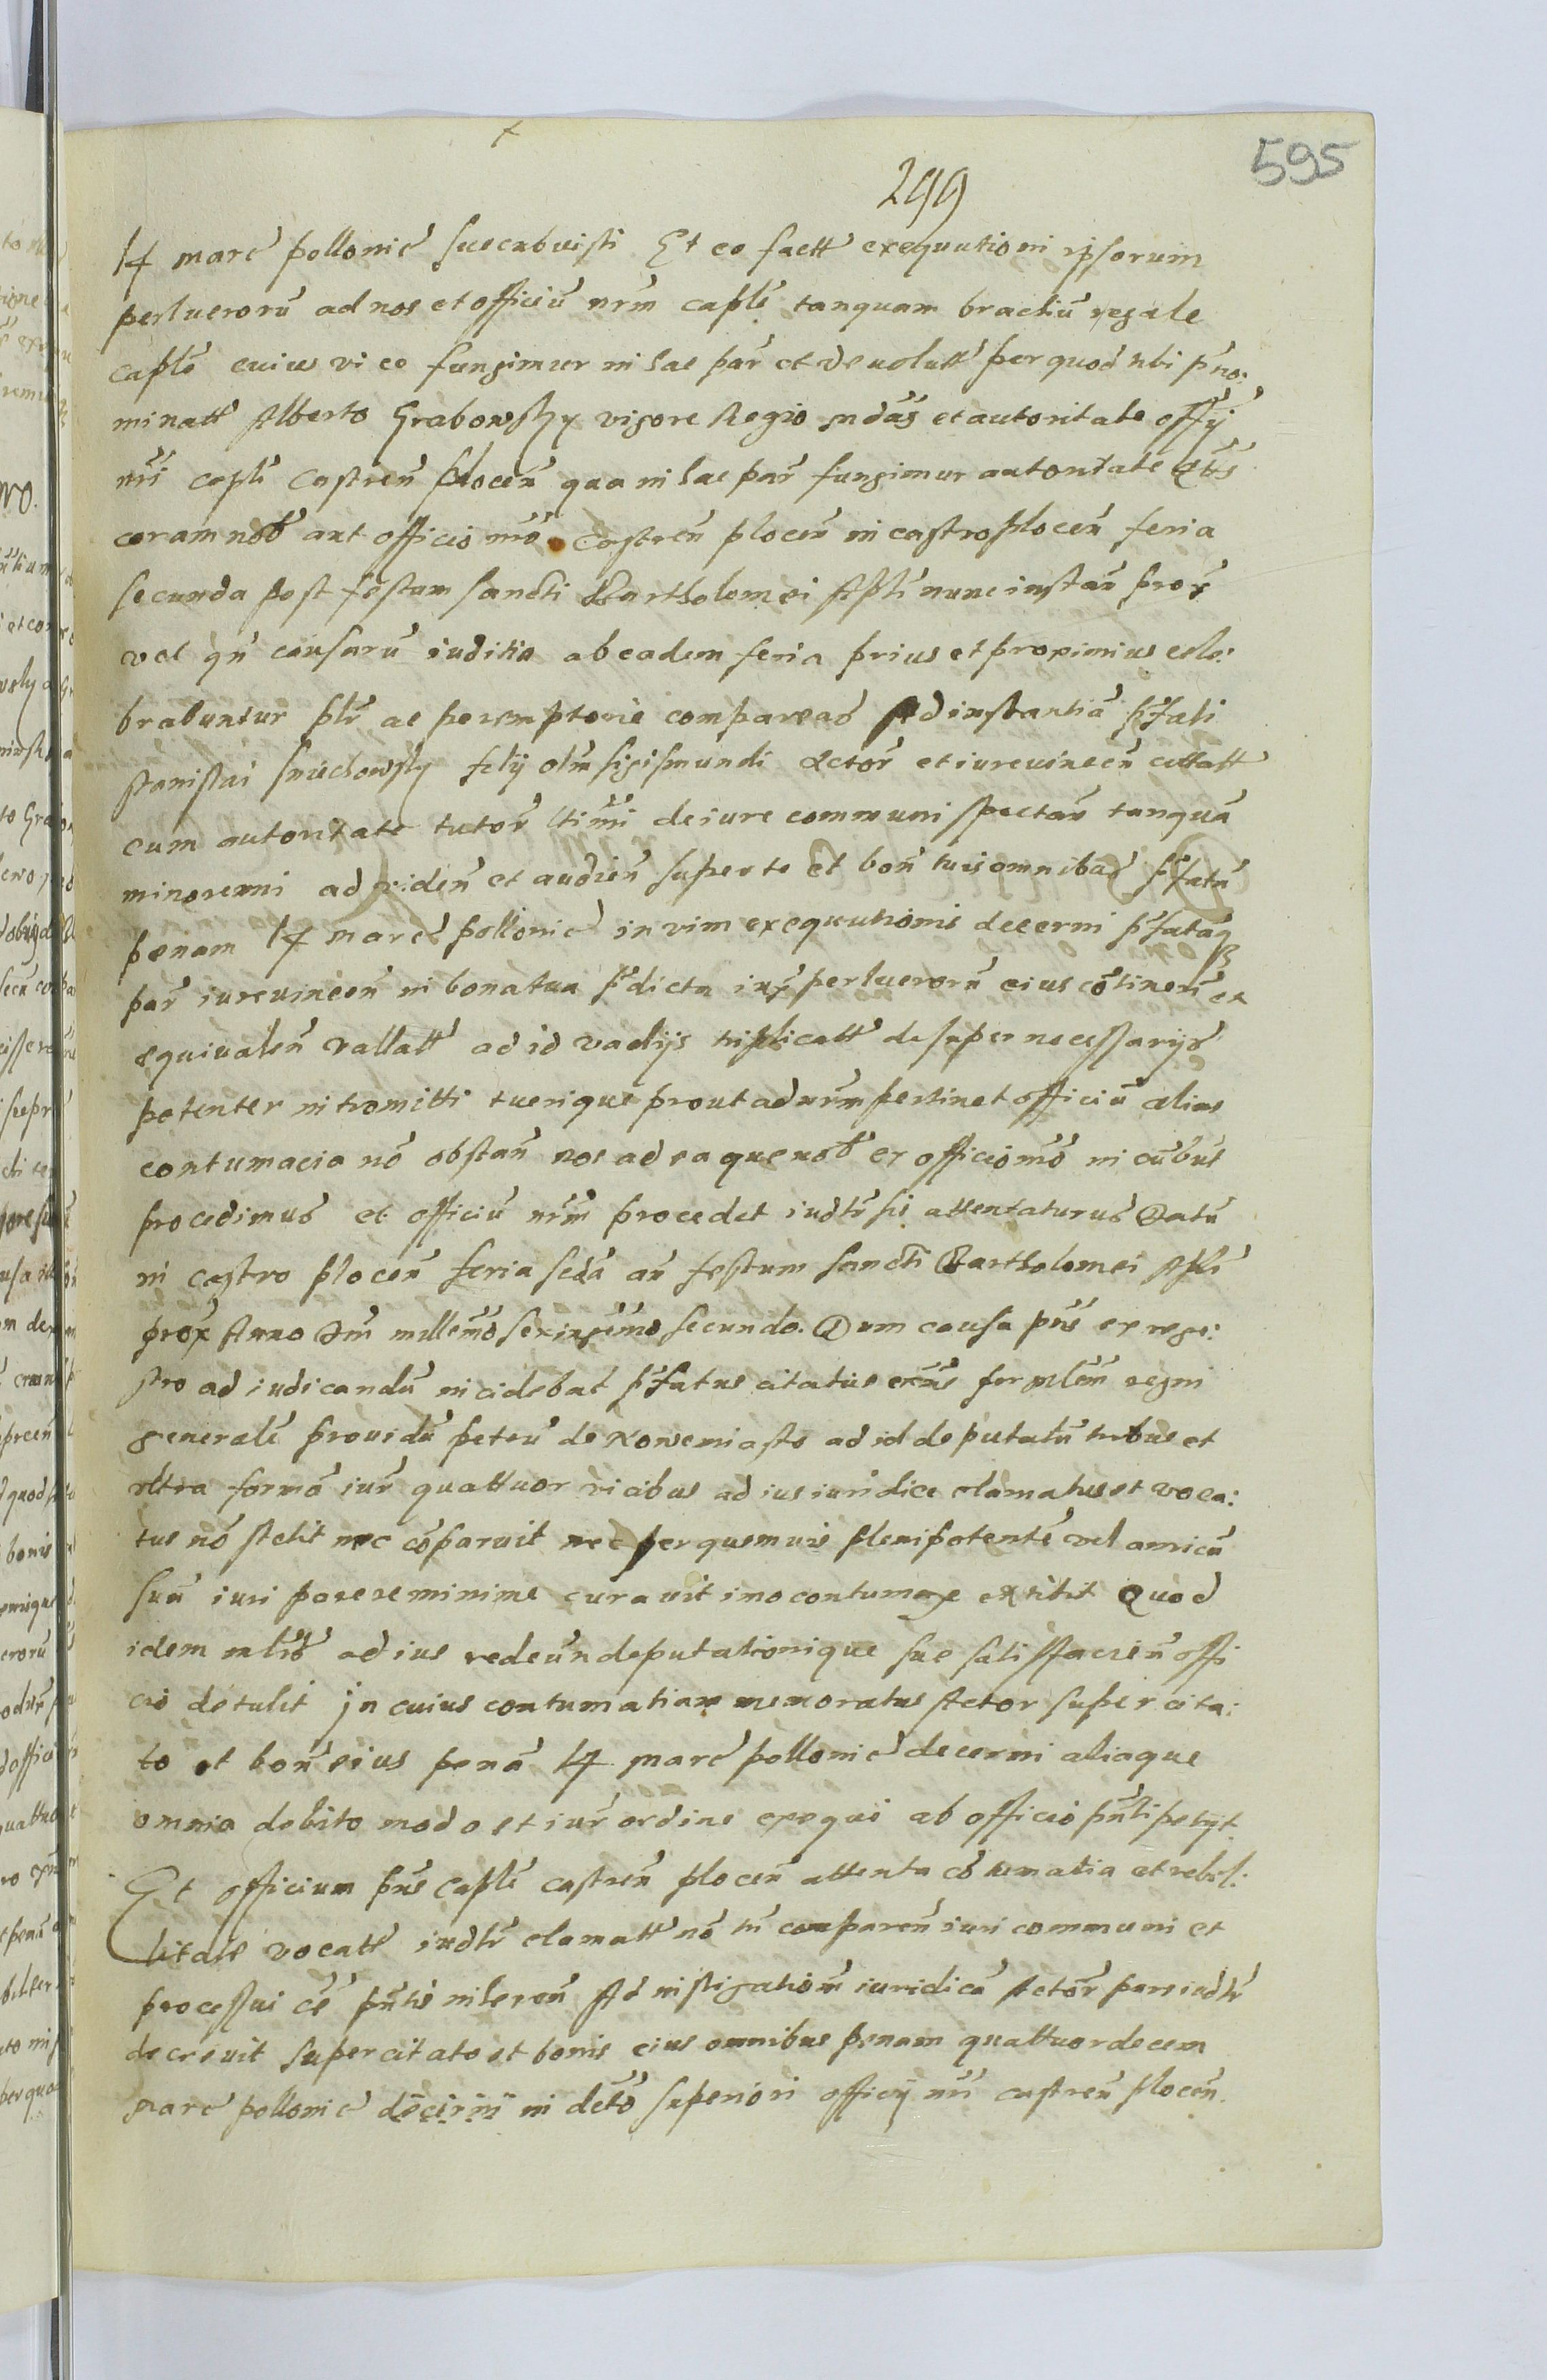 595
299
14 marc pollonic succubuisti Et eo factt exequutioni ipsorum
perlucrorū ad nos et officiū nrm caplē tanquam brachiū regale
caplē cuius vice fungimur in hac par et devolutt per quod tibi p̄no:
minatt Alberto Grabowsky vigore Regio mdās et autoritate offy
nri capli castren plocen qua in hac par fungimur autoritate
coram nob aut officio nro castren plocen in castro plocen feria
secunda post festum sancti Bartholomei Apli nunc instan prox
vel qn causarū iuditia ab eadem feria prius et proximius cele:
brabuntur plr ac peremptorie compareas Ad instantiā p̄fati
Stanislai Smuchowsky filij olm Sigismundi actor et iurevincen citatt
cum autoritate tutor ltimi de iure communi spectan tanquā
minorenni ad viden et audien super te et bon tuis omnibus p̄fatā
penam 14 marc pollonic in vim exequutionis decerni p̄fatāq
par iurevincen in bona tua p̄dicta iux perlucrorū eius cōtinen et
equivalen vallatt ad id vadijs triplicatt desuper necessarijs
potenter intromitti tuerique prout ad nrm pertinet officiū alias
contumacia nō obstan nos ad ea que nob ex officio nro incūbūt
procedimus et officiū nrm procedet iudtr sis attentaturus Datū
in castro plocen feria scdā an festum sancti Bartholomei Apli
prox Anno Dni millemo sexingemo secundo. Dum causa pns ex rege:
stro ad iudicandū incidebat p̄fatus citatus per mlem regni
generalē providū petrū de Nowemiasto ad id deputatū tribus et
ultra formā iur quattuor vicibus ad ius iuridice clamatus et voca:
tus nō stetit nec cōparuit nec per quemvis plenipotentē vel amicū
suū iuri parere minime curavit imo contumax extitit Quod
idem mlris ad ius redeun deputationique sue satisfacien offi
cio detulit jn cuius contumatiam memoratus Actor super cita:
to et bon eius penā 14 marc pollonic decerni aliaque
omnia debito modo et iur ordine exequi ab officio pnti petijt
Et officium pns caplē castren plocen attenta cōtumatia et rebel:
litate vocatt iudtr clamatt nō tn comparen iuri communi et
processui cē pntis inheren Ad instigationem iuridicā Actor pars iudtr
decrevit super citato et bonis eius omnibus penam quattuordecem
marc pollonic decerni in detō superiori officij nri castren plocen